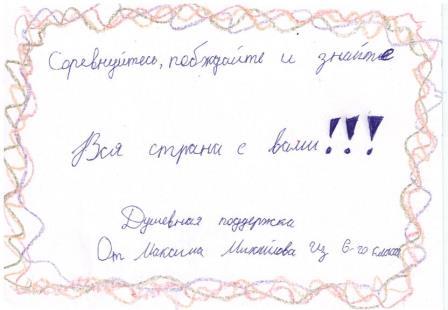 Соревнуйтесь, побждайте и знайте
Вся страна с вами!!!
Душевная поддержка
От Максима Михайлова из 6-го класса